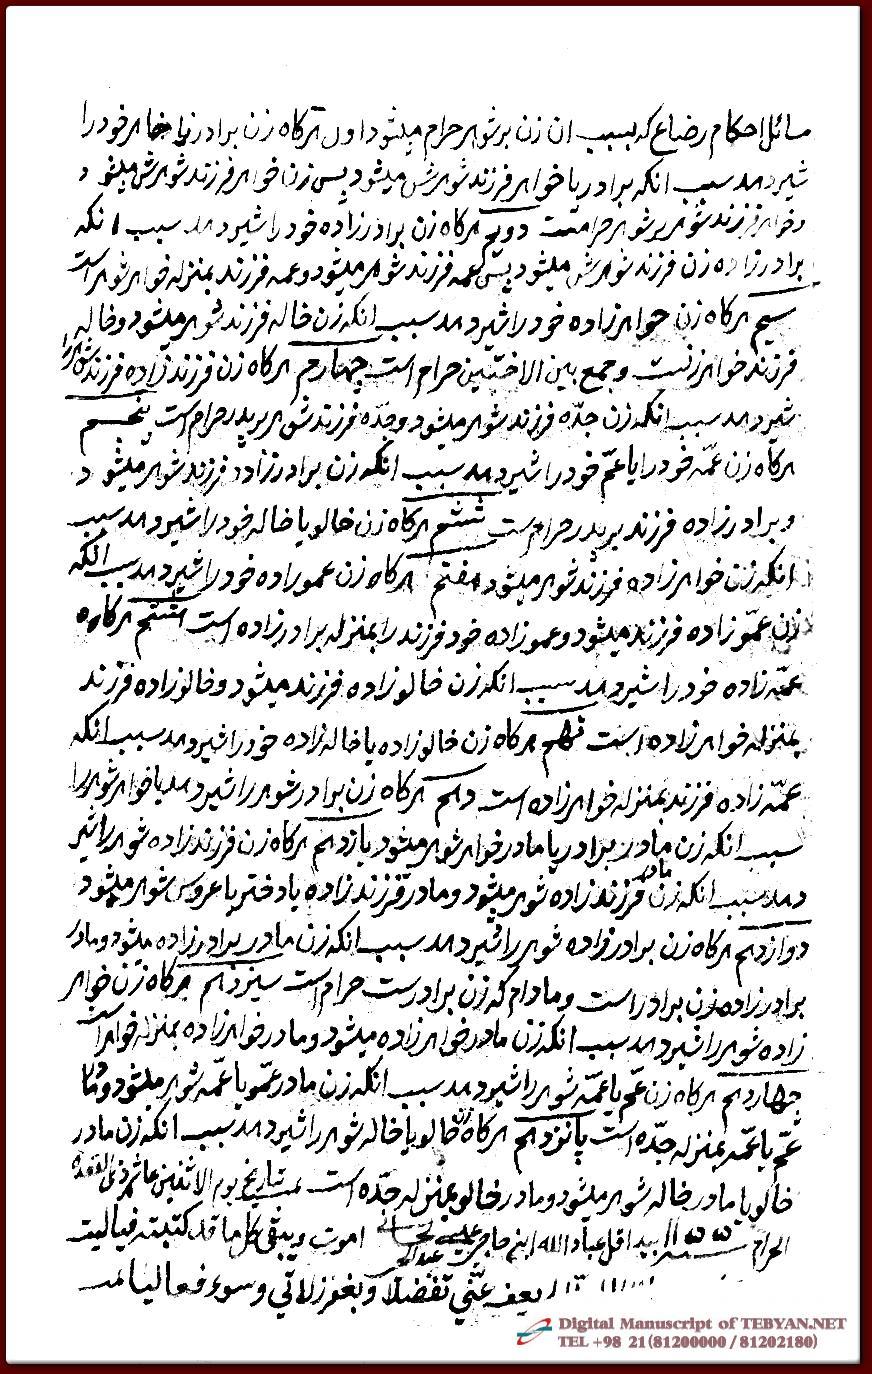 مسائل احکام رضاع که بسبب ان زن بر شوهر حرام میشود اول هرکاه زن برادر یا خواهر خود را
شیر دهد سبب انکه برادر یا خواهر فرزند شوهرش میشود پس زن خواهر فرزند شوهرش میشود
و خواهر فرزند شوهر بر شوهر حرامست دویم هرکاه زن برادرزاده خود را شیر دهد سبب انکه
برادرزاده زن فرزند شوهرش میشود پس عمه فرزند شوهر میشود و عمه فرزند بمنزله خواهر شوهر است
سیم هرکاه زن خواهرزاده خود را شیر دهد سبب انکه زن خاله فرزند شوهر میشود و خاله
فرزند خواهر زنست و جمع بین الاختین حرام است چهارم هرکاه زن فرزندزاده فرزند شوهر را
شیر دهد سبب انکه زن جدّه فرزند شوهر میشود و جدّه فرزند شوهر بر پدر حرام است پنجم
هرکاه زن عمّه خود را یا عمّ خود را شیر دهد سبب انکه زن برادرزاده فرزند شوهر میشود
و برادرزاده فرزند بر پدر حرام است ششم هرکاه زن خالو یا خاله خود را شیر دهد سبب
انکه زن خواهرزاده فرزند شوهر میشود هفتم هرکاه زن عموزاده خود را شیر دهد سبب انکه
زن عمّوزاده فرزند میشود و عموزاده خود فرزند را بمنزله برادرزاده است هشتم هرکاه
عمّه زاده خود را شیر دهد سبب انکه زن خالوزاده فرزند میشود و خالوزاده فرزند
بمنزله خواهرزاده است نهم هرکاه زن خالوزاده یا خاله زاده خود را شیر دهد سبب انکه
عمّه زاده فرزند بمنزله خواهرزاده است دهم هرکاه زن برادر شوهر را شیر دهد یا خواهر شوهر را
سبب انکه زن مادر برادر یا مادر خواهر شوهر میشود یازدهم هرکاه زن فرزندزاده شوهر را شیر
دهد سبب انکه زن مادر فرزندزاده شوهر میشود و مادر فرزندزاده یا دختر یا عروس شوهر میشود
دوازدهم هرکاه زن برادرزاده شوهر را شیر دهد سبب انکه زن مادر برادرزاده میشود و مادر
برادرزاده زن برادر است و مادام که زن برادرست حرام است سیزدهم هرکاه زن خواهر
زاده شوهر را شیر دهد سبب انکه زن مادر خواهرزاده میشود و مادر خواهرزاده بمنزله خواهر است
چهاردهم هرکاه زن عمّ یا عمّه شوهر را شیر دهد سبب انکه زن مادر عمّو یا عمّه شوهر میشود و مادر
عمّ یا عمّه بمنزله جدّه است پانزدهم هرکاه زن خالو یا خاله شوهر را شیر دهد سبب انکه زن مادر
خالو یا مادر خاله شوهر میشود و مادر خالو بمنزله جدّه است تمت بتاریخ یوم الاثنین عاشر ذی القعده
الحرام سنه بید اقل عباد الله ابن حاجی علی عبد اموت و یبقی کل ما قد کتبته فیالیت
یعف عنّی تفضلا و یغفر زلاتی و سوء فعالیا
Digital Manuscript of TEBYAN.NET
TEL +98 21(81200000 / 81202180)